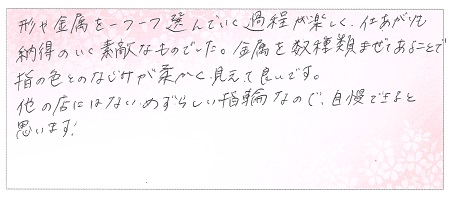 形や金属を一つ一つ選んでいく過程が楽しく、仕あがりも
納得のいく素敵なものでした。金属を数種類まぜてあることで
指の色とのなじみが柔かく見えて良いです。
他の店にはないめずらしい指輪なので、自慢できると
思います!